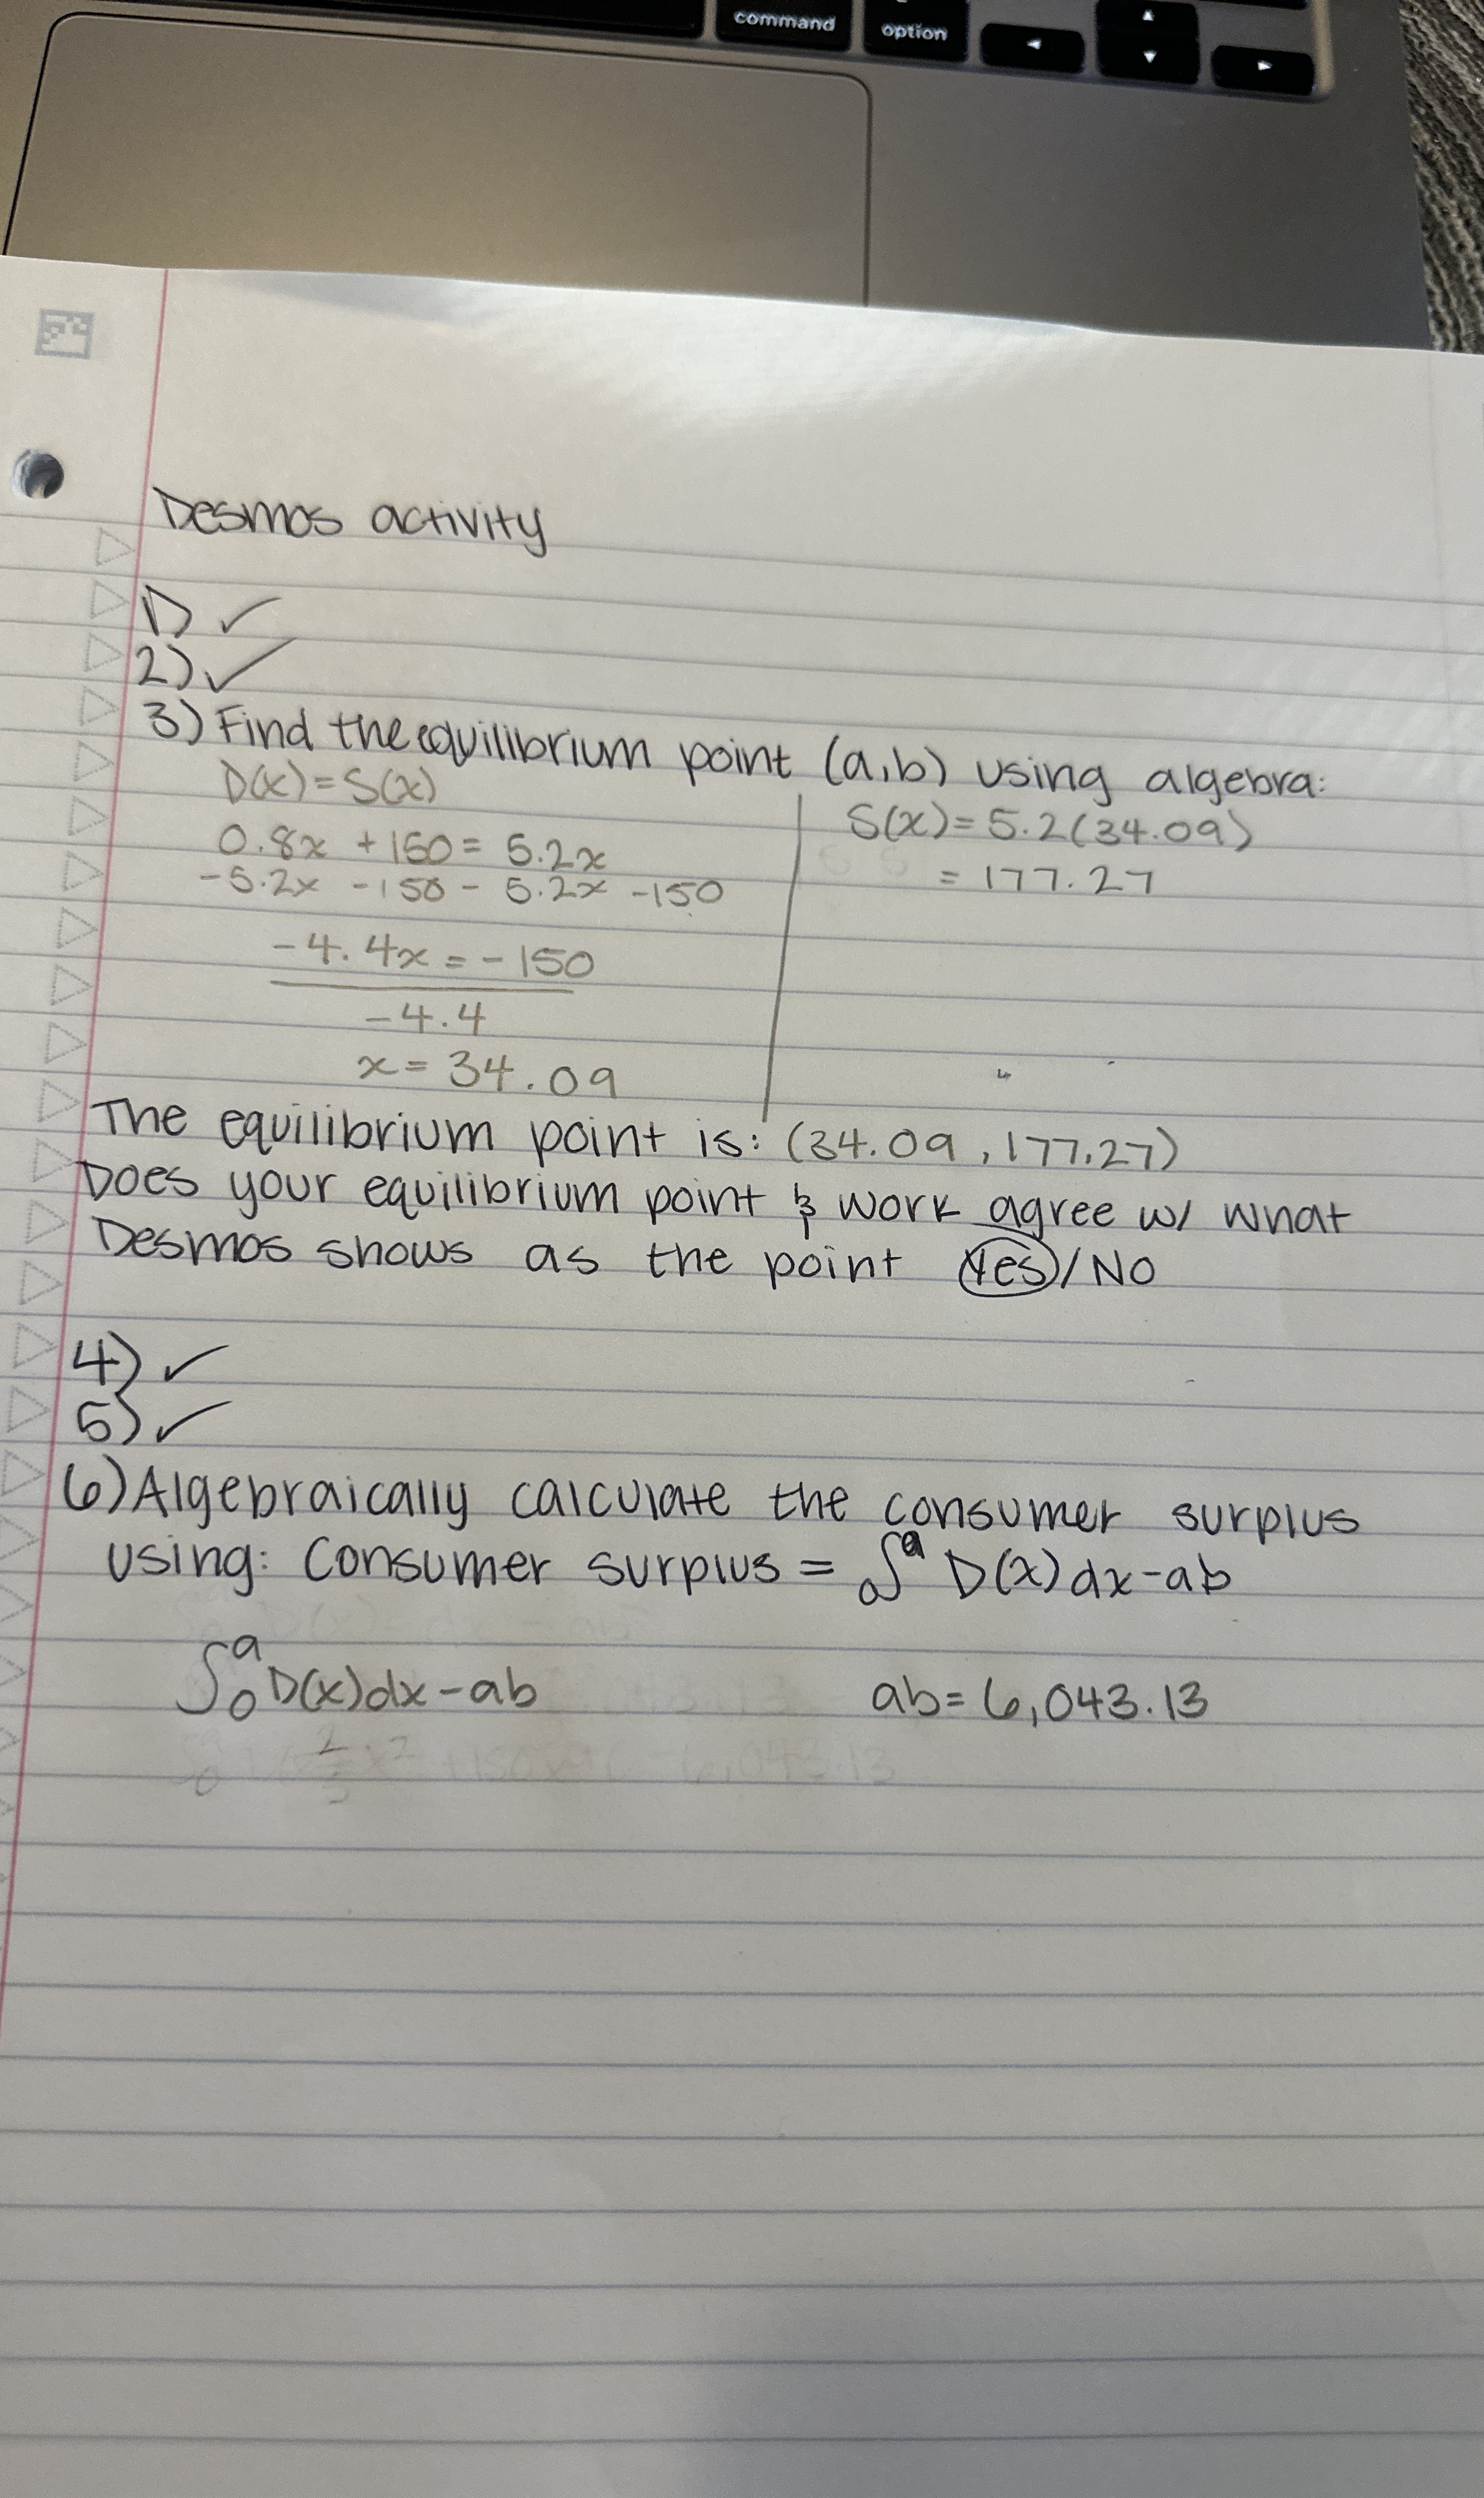 command
option
Desmos activity
1) ✓
2) ✓
3) Find the equilibrium point (a,b) using algebra:
D(x) = S(x)
0.8x + 150 = 5.2x
-5.2x -150 - 5.2x -150
-4.4x = -150
-4.4
x = 34.09
S(x) = 5.2(34.09)
= 177.27
The equilibrium point is: (34.09, 177.27)
Does your equilibrium point & work agree w/ what
Desmos shows as the point Yes / No
4) ✓
5) ✓
6) Algebraically calculate the consumer surplus
using: Consumer surplus = ₀∫ᵃ D(x)dx-ab
∫₀ᵃ D(x)dx-ab
ab = 6,043.13